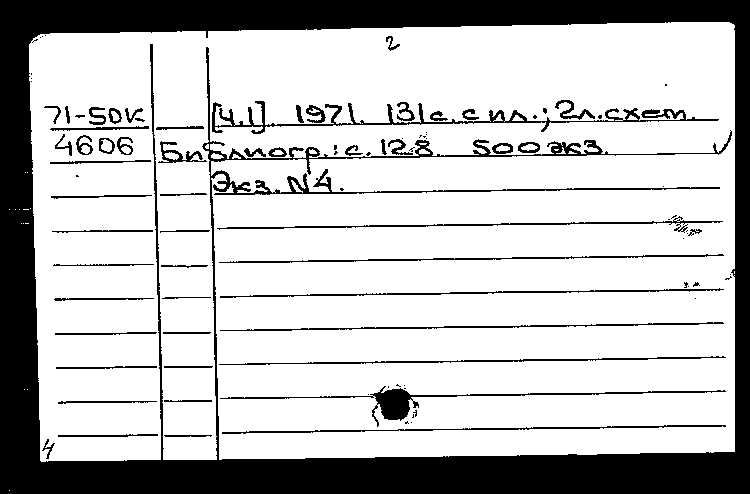 2
71-5DK [Ч.1]. 1971. 131с. с ил.; 2л.схем.
4606 Библиогр.: с. 128 500 экз. ✓
Экз. N4.
4